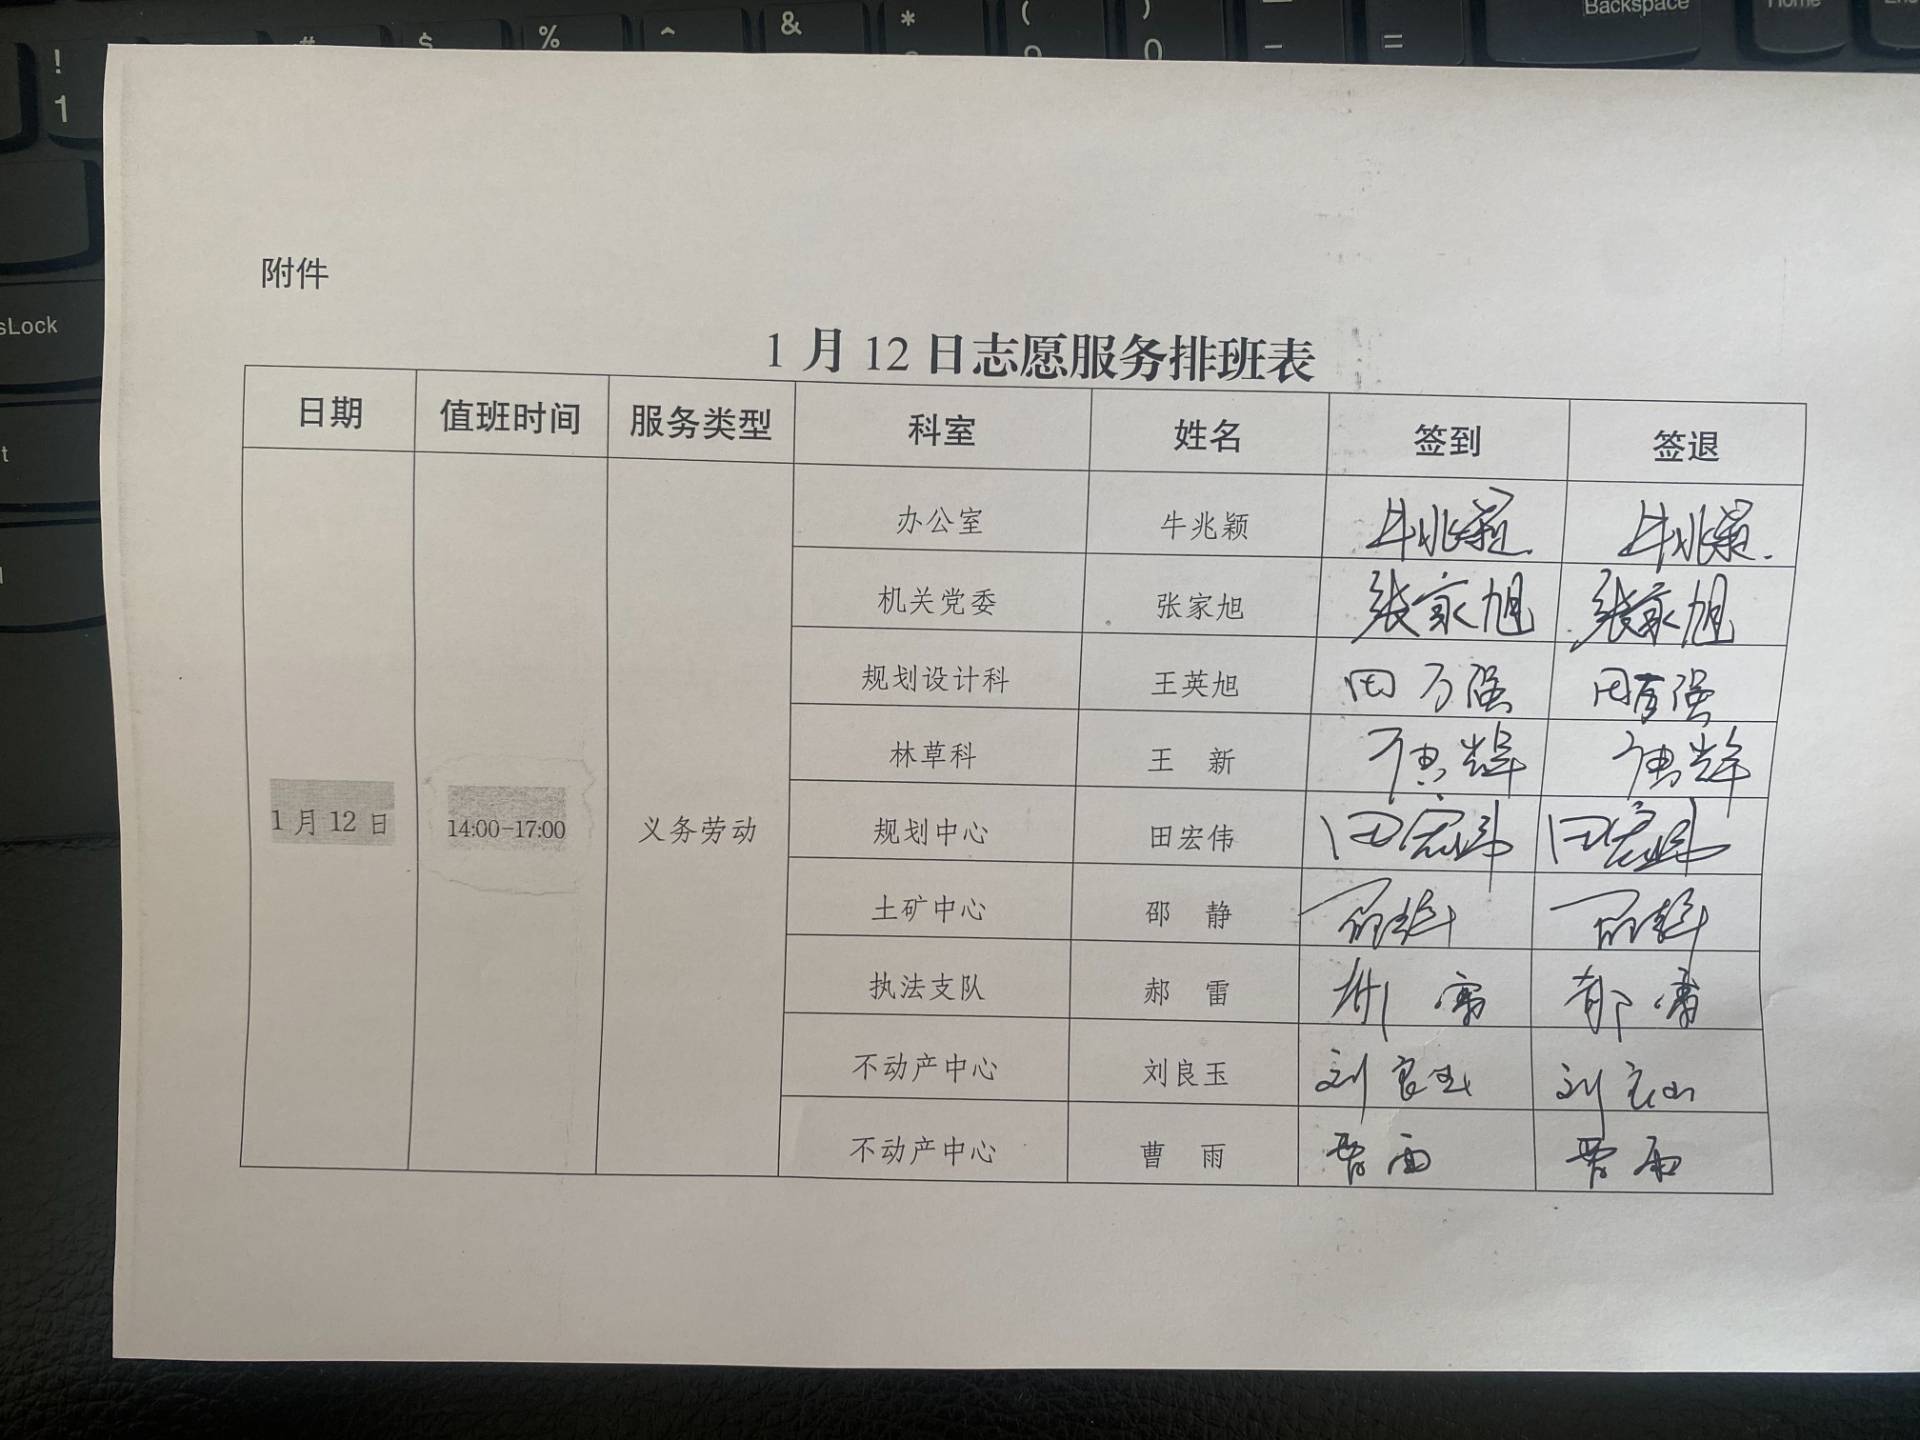 ! 1 # $ % ^ & * ( 9 ) 0 - = Backspace Home
sLock
附件
1 月 12 日志愿服务排班表
日期 值班时间 服务类型 科室 姓名 签到 签退
1 月 12 日 14:00-17:00 义务劳动
办公室 牛兆颖 牛兆颖 牛兆颖
机关党委 张家旭 张家旭 张家旭
规划设计科 王英旭 田万强
林草科 王 新
规划中心 田宏伟 田宏伟 田宏伟
土矿中心 邵 静 邵静 邵静
执法支队 郝 雷 郝雷 郝雷
不动产中心 刘良玉 刘良玉 刘良玉
不动产中心 曹 雨 曹雨 曹雨